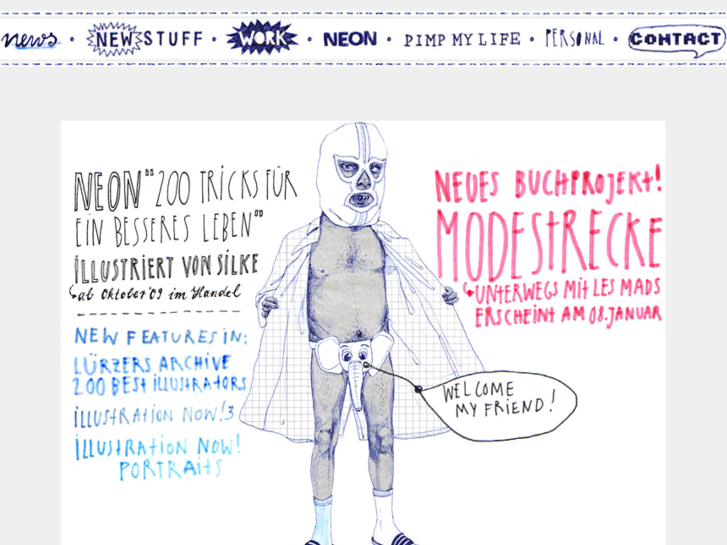 news • NEW STUFF • WORK • NEON • PIMP MY LIFE • PERSONAL • CONTACT
NEON "200 TRICKS FÜR
EIN BESSERES LEBEN"
ILLUSTRIERT VON SILKE
ab Oktober '09 im Handel
NEW FEATURES IN:
LÜRZERS ARCHIVE
200 BEST ILLUSTRATORS
ILLUSTRATION NOW! 3
ILLUSTRATION NOW!
PORTRAITS
NEUES BUCHPROJEKT!
MODESTRECKE
UNTERWEGS MIT LES MADS
ERSCHEINT AM 08. JANUAR
WELCOME
MY FRIEND!